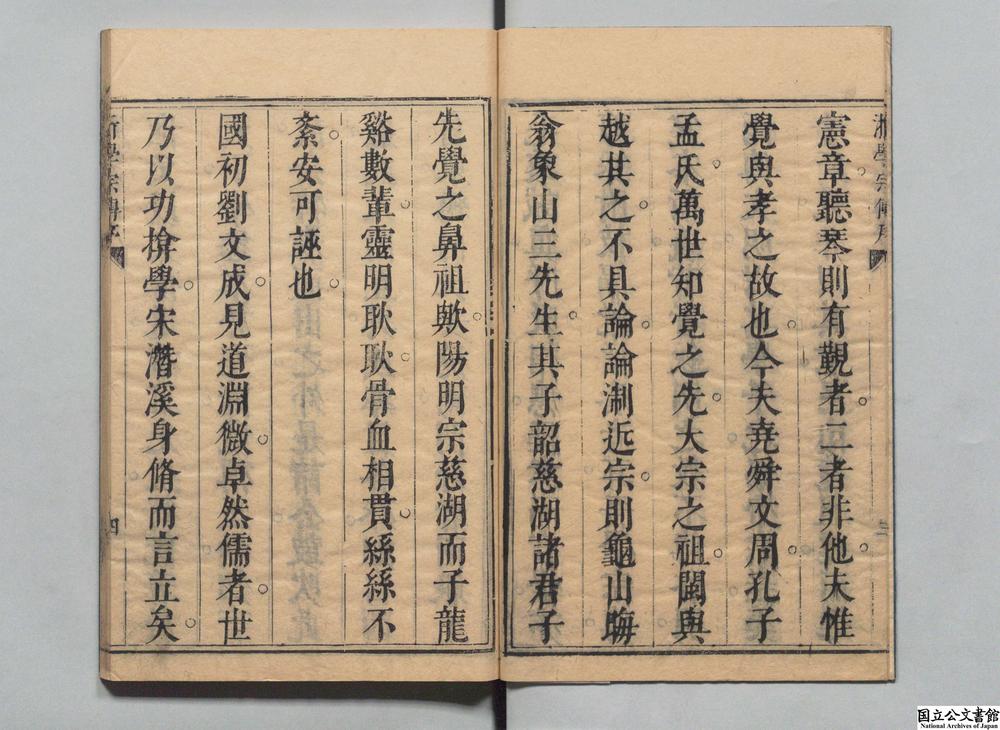 憲章聽琴則有覿者二者非他夫惟
覺與孝之故也今夫堯舜文周孔子
孟氏萬世知覺之先大宗之祖閩與
越其之不具論論淛近宗則龜山晦
翁象山三先生其子韶慈湖諸君子
先覺之鼻祖歟陽明宗慈湖而子龍
谿數輩靈明耿耿骨血相貫絲絲不
紊安可誣也
國初劉文成見道淵微卓然儒者世
乃以功揜學宋潛溪身脩而言立矣
四
国立公文書館
National Archives of Japan